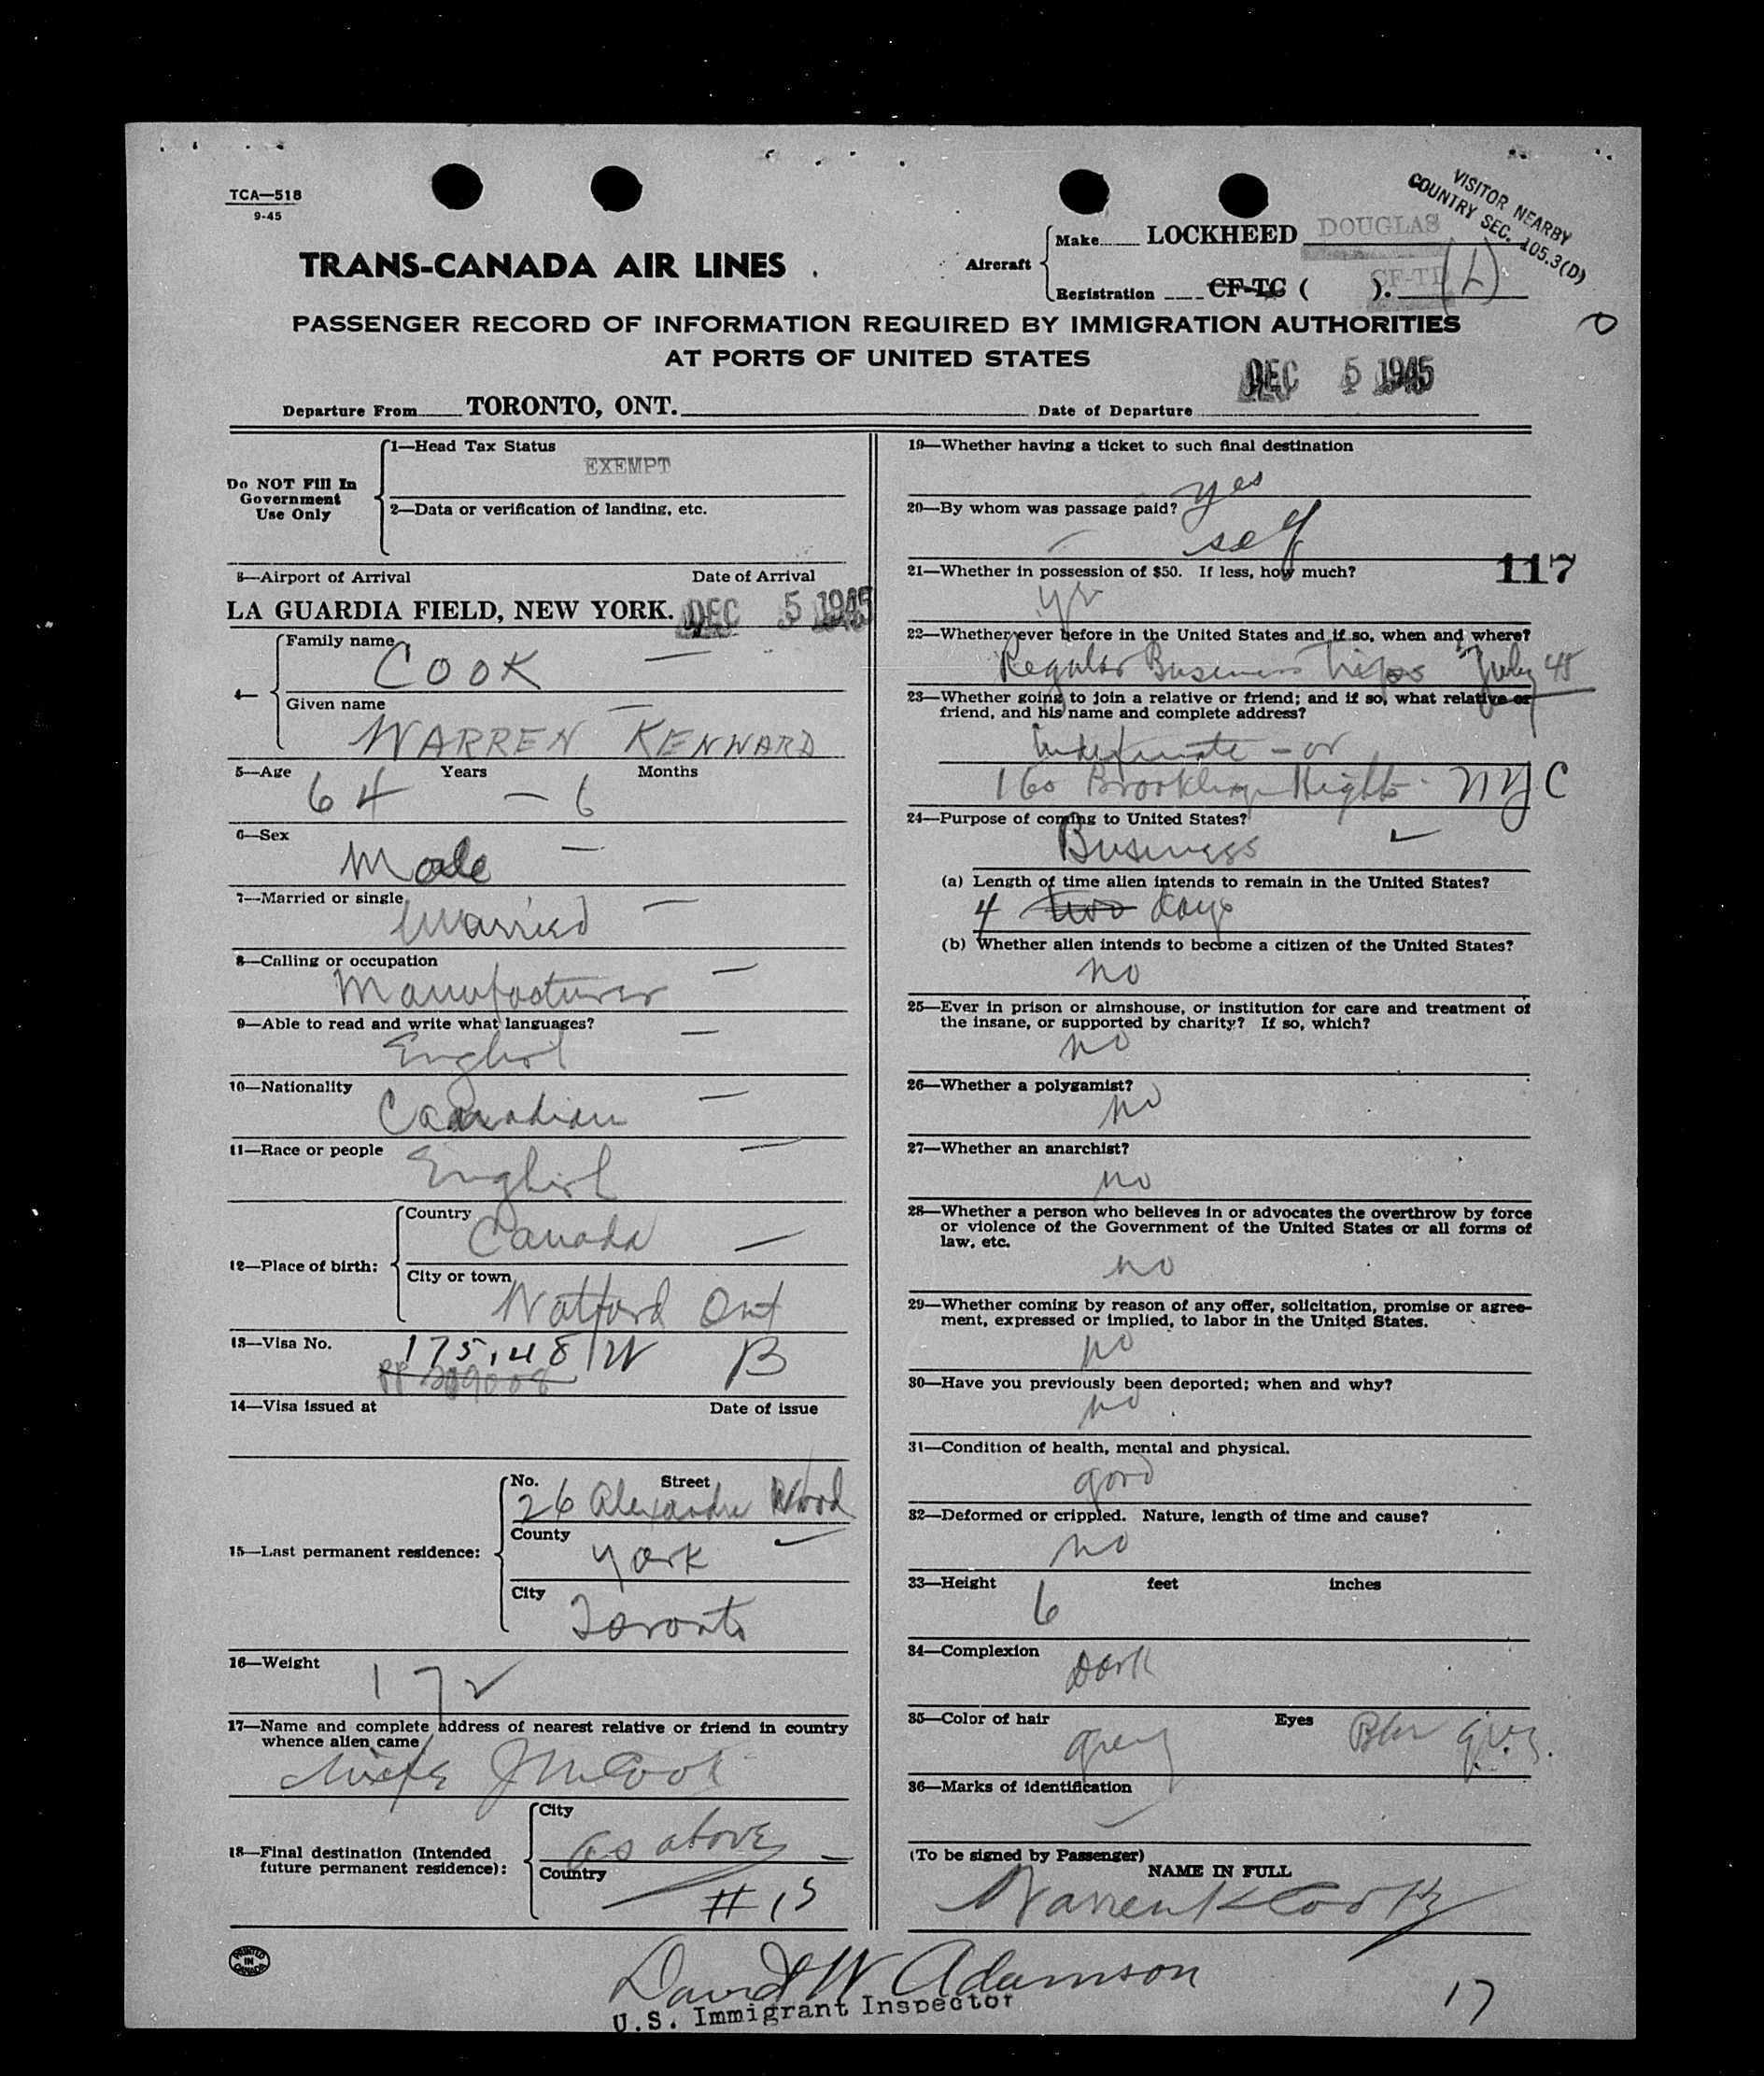 TCA—518
9-45
VISITOR NEARBY
COUNTRY SEC. 105.3(D)
TRANS-CANADA AIR LINES
Aircraft
Make LOCKHEED DOUGLAS
Registration CF-TC ( ). CF-TD (L)
PASSENGER RECORD OF INFORMATION REQUIRED BY IMMIGRATION AUTHORITIES
AT PORTS OF UNITED STATES
DEC 5 1945
Departure From TORONTO, ONT. Date of Departure
Do NOT Fill In
Government
Use Only
1—Head Tax Status
EXEMPT
2—Data or verification of landing, etc.
3—Airport of Arrival Date of Arrival
LA GUARDIA FIELD, NEW YORK. DEC 5 1945
4—
Family name
COOK —
Given name
WARREN KENWARD
5—Age Years Months
64 — 6
6—Sex
Male —
7—Married or single
Married —
8—Calling or occupation
Manufacturer —
9—Able to read and write what languages?
English —
10—Nationality
Canadian —
11—Race or people
English —
12—Place of birth:
Country
Canada —
City or town
Watford Ont
13—Visa No. 175,48 B
14—Visa issued at Date of issue
15—Last permanent residence:
No. Street
26 Alexandra Wood
County
York
City
Toronto
16—Weight
172
17—Name and complete address of nearest relative or friend in country
whence alien came
Wife J M Cook
18—Final destination (Intended
future permanent residence):
City
as above —
Country
# 15
19—Whether having a ticket to such final destination
yes
20—By whom was passage paid?
self
21—Whether in possession of $50. If less, how much? 117
yes
22—Whether ever before in the United States and if so, when and where?
Regular Business Trips July 45
23—Whether going to join a relative or friend; and if so, what relative or
friend, and his name and complete address?
Indefinate — or
160 Brooklyn Heights - NYC
24—Purpose of coming to United States?
Business
(a) Length of time alien intends to remain in the United States?
4 two days
(b) Whether alien intends to become a citizen of the United States?
no
25—Ever in prison or almshouse, or institution for care and treatment of
the insane, or supported by charity? If so, which?
no
26—Whether a polygamist?
no
27—Whether an anarchist?
no
28—Whether a person who believes in or advocates the overthrow by force
or violence of the Government of the United States or all forms of
law, etc.
no
29—Whether coming by reason of any offer, solicitation, promise or agree-
ment, expressed or implied, to labor in the United States.
no
30—Have you previously been deported; when and why?
no
31—Condition of health, mental and physical.
good
32—Deformed or crippled. Nature, length of time and cause?
no
33—Height feet inches
6
34—Complexion
Dark
35—Color of hair Eyes
grey
36—Marks of identification
(To be signed by Passenger)
NAME IN FULL
Warren K Cook
PRINTED
IN
CANADA
David W Adamson
U.S. Immigrant Inspector
17